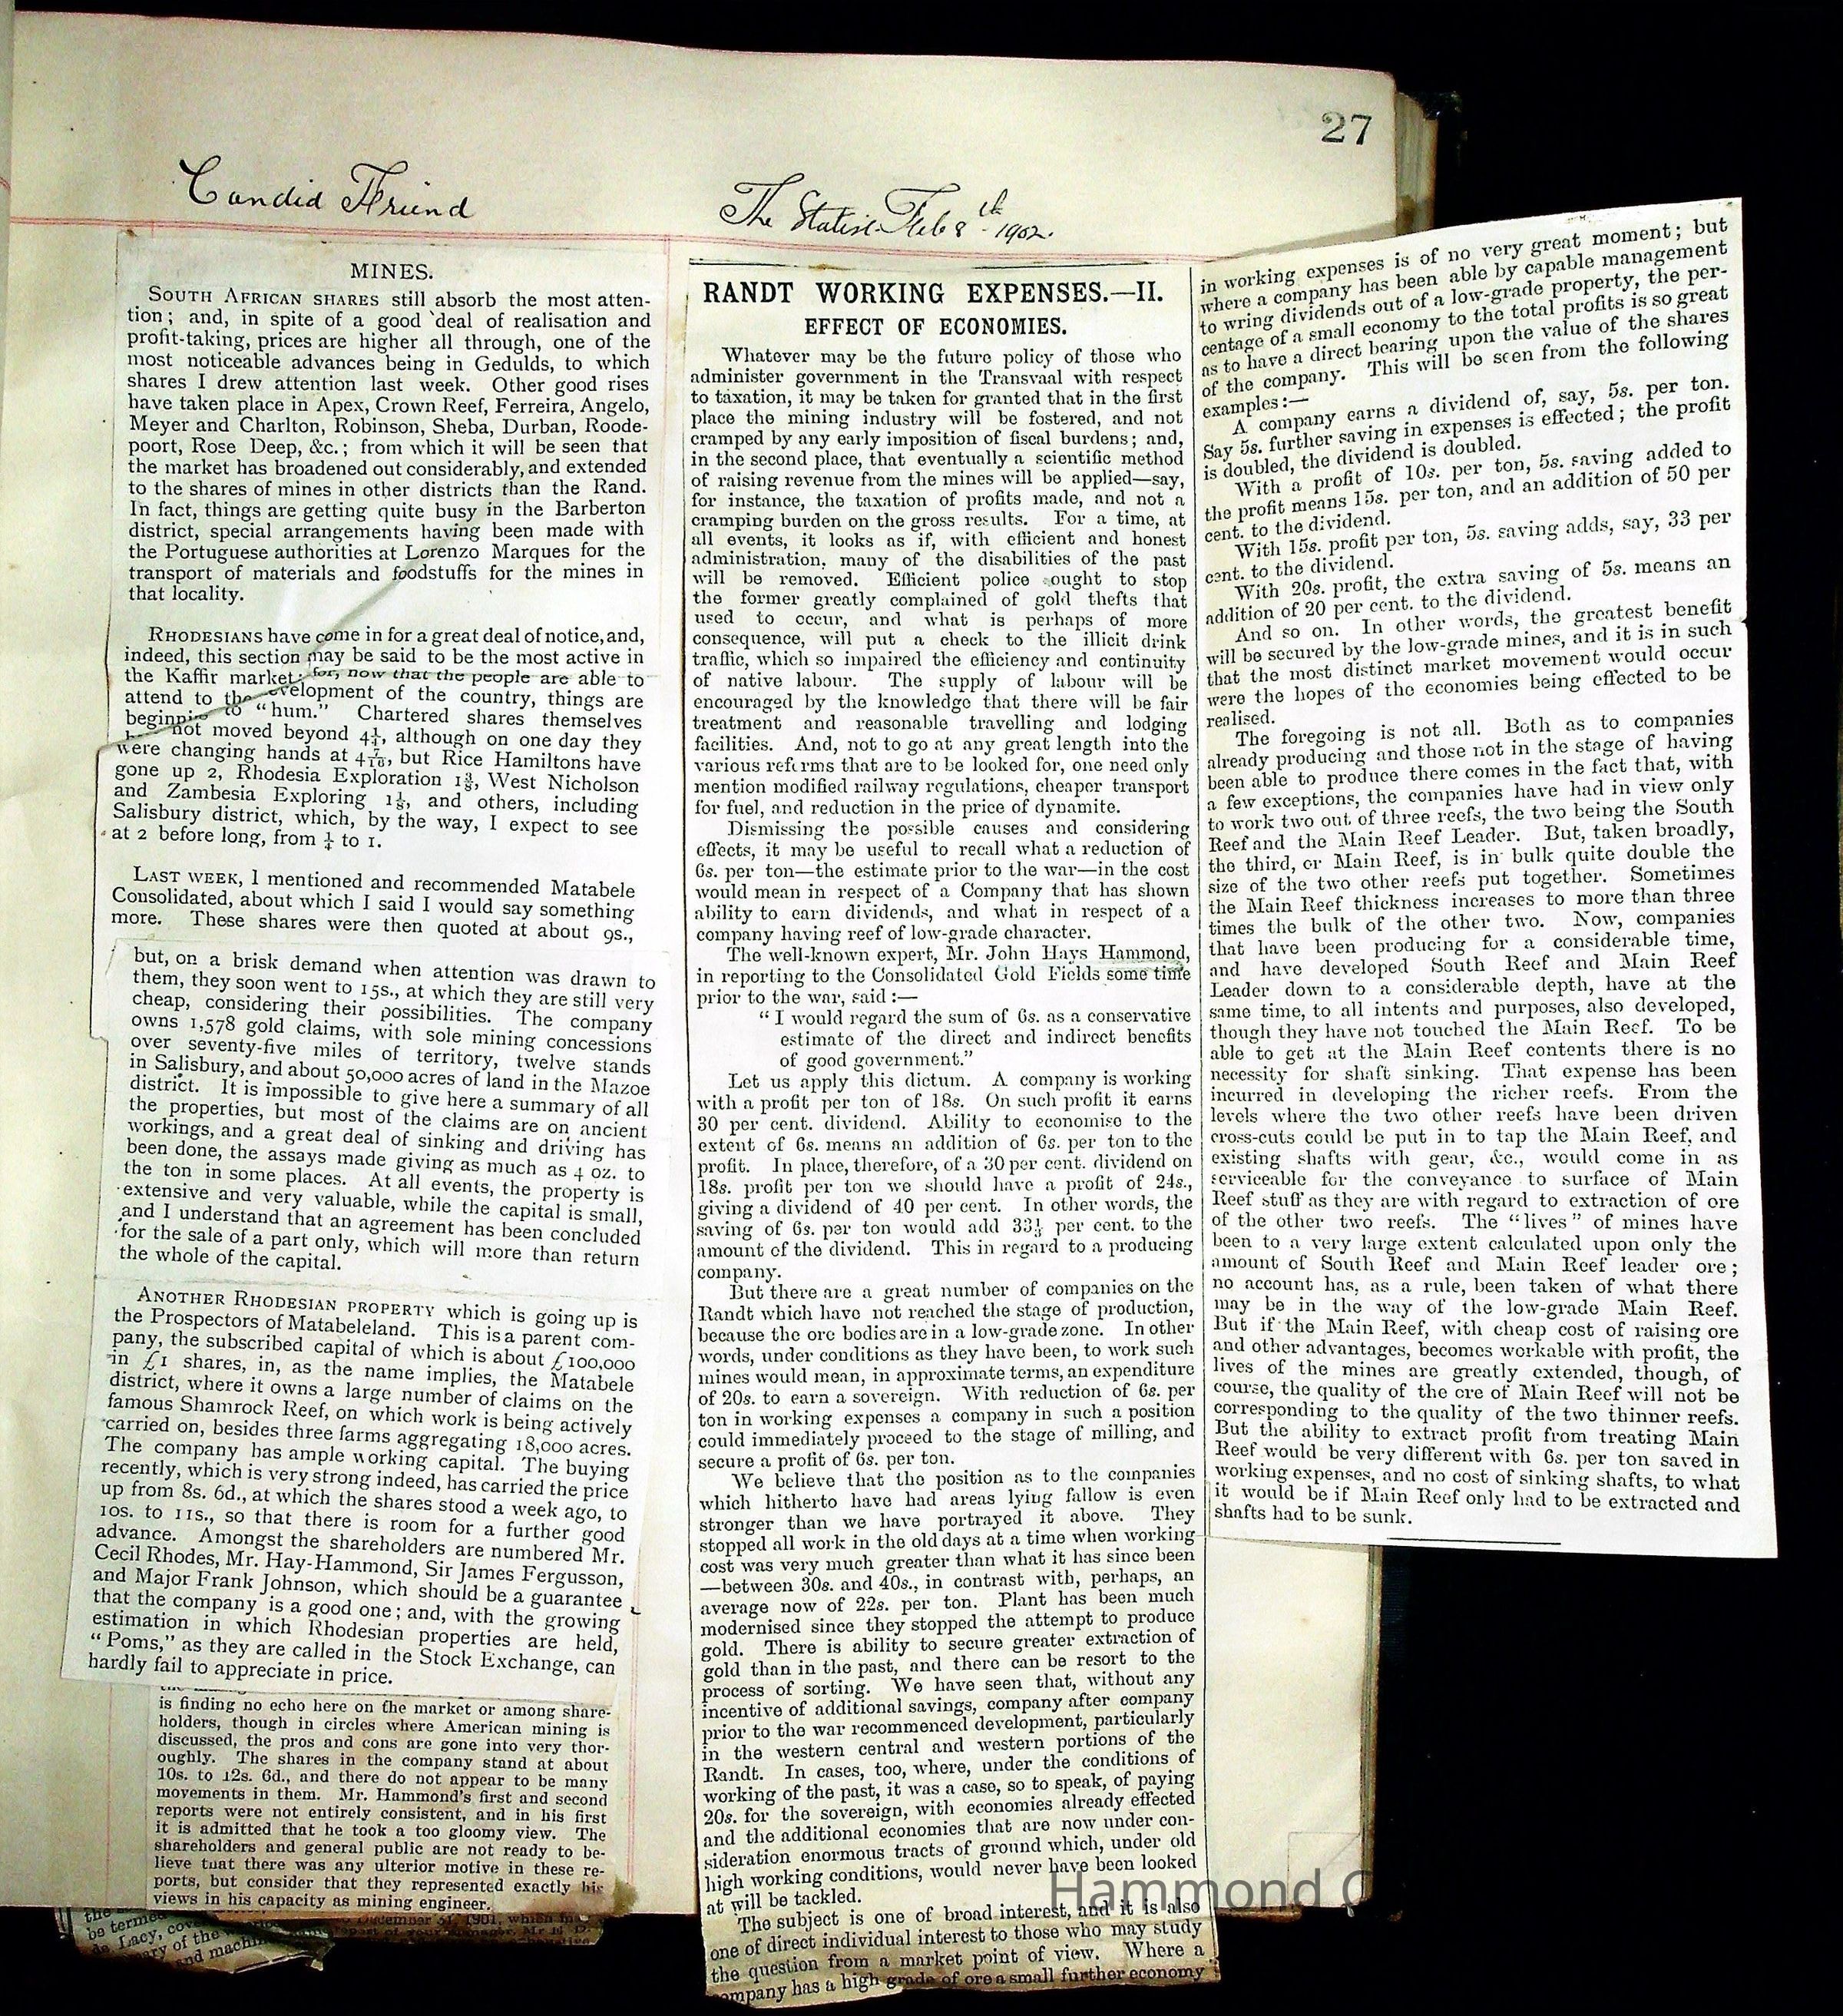 27
Candid Friend
MINES.
SOUTH AFRICAN SHARES still absorb the most atten-
tion; and, in spite of a good deal of realisation and
profit-taking, prices are higher all through, one of the
most noticeable advances being in Gedulds, to which
shares I drew attention last week. Other good rises
have taken place in Apex, Crown Reef, Ferreira, Angelo,
Meyer and Charlton, Robinson, Sheba, Durban, Roode-
poort, Rose Deep, &c.; from which it will be seen that
the market has broadened out considerably, and extended
to the shares of mines in other districts than the Rand.
In fact, things are getting quite busy in the Barberton
district, special arrangements having been made with
the Portuguese authorities at Lorenzo Marques for the
transport of materials and foodstuffs for the mines in
that locality.
RHODESIANS have come in for a great deal of notice, and,
indeed, this section may be said to be the most active in
the Kaffir market; for, now that the people are able to
attend to the development of the country, things are
beginning to "hum." Chartered shares themselves
not moved beyond 4¼, although on one day they
were changing hands at 4 7/16, but Rice Hamiltons have
gone up 2, Rhodesia Exploration 1⅜, West Nicholson
and Zambesia Exploring 1⅛, and others, including
Salisbury district, which, by the way, I expect to see
at 2 before long, from ¼ to 1.
LAST WEEK, I mentioned and recommended Matabele
Consolidated, about which I said I would say something
more. These shares were then quoted at about 9s.,
but, on a brisk demand when attention was drawn to
them, they soon went to 15s., at which they are still very
cheap, considering their possibilities. The company
owns 1,578 gold claims, with sole mining concessions
over seventy-five miles of territory, twelve stands
in Salisbury, and about 50,000 acres of land in the Mazoe
district. It is impossible to give here a summary of all
the properties, but most of the claims are on ancient
workings, and a great deal of sinking and driving has
been done, the assays made giving as much as 4 oz. to
the ton in some places. At all events, the property is
extensive and very valuable, while the capital is small,
and I understand that an agreement has been concluded
for the sale of a part only, which will more than return
the whole of the capital.
ANOTHER RHODESIAN PROPERTY which is going up is
the Prospectors of Matabeleland. This is a parent com-
pany, the subscribed capital of which is about £100,000
in £1 shares, in, as the name implies, the Matabele
district, where it owns a large number of claims on the
famous Shamrock Reef, on which work is being actively
carried on, besides three farms aggregating 18,000 acres.
The company has ample working capital. The buying
recently, which is very strong indeed, has carried the price
up from 8s. 6d., at which the shares stood a week ago, to
10s. to 11s., so that there is room for a further good
advance. Amongst the shareholders are numbered Mr.
Cecil Rhodes, Mr. Hay-Hammond, Sir James Fergusson,
and Major Frank Johnson, which should be a guarantee
that the company is a good one; and, with the growing
estimation in which Rhodesian properties are held,
"Poms," as they are called in the Stock Exchange, can
hardly fail to appreciate in price.
is finding no echo here on the market or among share-
holders, though in circles where American mining is
discussed, the pros and cons are gone into very thor-
oughly. The shares in the company stand at about
10s. to 12s. 6d., and there do not appear to be many
movements in them. Mr. Hammond's first and second
reports were not entirely consistent, and in his first
it is admitted that he took a too gloomy view. The
shareholders and general public are not ready to be-
lieve that there was any ulterior motive in these re-
ports, but consider that they represented exactly his
views in his capacity as mining engineer.
be termed
de Lacy, cov
ary of the
and machin
December 31, 1901, which
The Statist Feb 8th 1902.
RANDT WORKING EXPENSES.—II.
EFFECT OF ECONOMIES.
Whatever may be the future policy of those who
administer government in the Transvaal with respect
to taxation, it may be taken for granted that in the first
place the mining industry will be fostered, and not
cramped by any early imposition of fiscal burdens; and,
in the second place, that eventually a scientific method
of raising revenue from the mines will be applied—say,
for instance, the taxation of profits made, and not a
cramping burden on the gross results. For a time, at
all events, it looks as if, with efficient and honest
administration, many of the disabilities of the past
will be removed. Efficient police ought to stop
the former greatly complained of gold thefts that
used to occur, and what is perhaps of more
consequence, will put a check to the illicit drink
traffic, which so impaired the efficiency and continuity
of native labour. The supply of labour will be
encouraged by the knowledge that there will be fair
treatment and reasonable travelling and lodging
facilities. And, not to go at any great length into the
various reforms that are to be looked for, one need only
mention modified railway regulations, cheaper transport
for fuel, and reduction in the price of dynamite.
Dismissing the possible causes and considering
effects, it may be useful to recall what a reduction of
6s. per ton—the estimate prior to the war—in the cost
would mean in respect of a Company that has shown
ability to earn dividends, and what in respect of a
company having reef of low-grade character.
The well-known expert, Mr. John Hays Hammond,
in reporting to the Consolidated Gold Fields some time
prior to the war, said:—
"I would regard the sum of 6s. as a conservative
estimate of the direct and indirect benefits
of good government."
Let us apply this dictum. A company is working
with a profit per ton of 18s. On such profit it earns
30 per cent. dividend. Ability to economise to the
extent of 6s. means an addition of 6s. per ton to the
profit. In place, therefore, of a 30 per cent. dividend on
18s. profit per ton we should have a profit of 24s.,
giving a dividend of 40 per cent. In other words, the
saving of 6s. per ton would add 33⅓ per cent. to the
amount of the dividend. This in regard to a producing
company.
But there are a great number of companies on the
Randt which have not reached the stage of production,
because the ore bodies are in a low-grade zone. In other
words, under conditions as they have been, to work such
mines would mean, in approximate terms, an expenditure
of 20s. to earn a sovereign. With reduction of 6s. per
ton in working expenses a company in such a position
could immediately proceed to the stage of milling, and
secure a profit of 6s. per ton.
We believe that the position as to the companies
which hitherto have had areas lying fallow is even
stronger than we have portrayed it above. They
stopped all work in the old days at a time when working
cost was very much greater than what it has since been
—between 30s. and 40s., in contrast with, perhaps, an
average now of 22s. per ton. Plant has been much
modernised since they stopped the attempt to produce
gold. There is ability to secure greater extraction of
gold than in the past, and there can be resort to the
process of sorting. We have seen that, without any
incentive of additional savings, company after company
prior to the war recommenced development, particularly
in the western central and western portions of the
Randt. In cases, too, where, under the conditions of
working of the past, it was a case, so to speak, of paying
20s. for the sovereign, with economies already effected
and the additional economies that are now under con-
sideration enormous tracts of ground which, under old
high working conditions, would never have been looked
at will be tackled.
The subject is one of broad interest, and it is also
one of direct individual interest to those who may study
the question from a market point of view. Where a
company has a high grade of ore a small further economy
in working expenses is of no very great moment; but
where a company has been able by capable management
to wring dividends out of a low-grade property, the per-
centage of a small economy to the total profits is so great
as to have a direct bearing upon the value of the shares
of the company. This will be seen from the following
examples:—
A company earns a dividend of, say, 5s. per ton.
Say 5s. further saving in expenses is effected; the profit
is doubled, the dividend is doubled.
With a profit of 10s. per ton, 5s. saving added to
the profit means 15s. per ton, and an addition of 50 per
cent. to the dividend.
With 15s. profit per ton, 5s. saving adds, say, 33 per
cent. to the dividend.
With 20s. profit, the extra saving of 5s. means an
addition of 20 per cent. to the dividend.
And so on. In other words, the greatest benefit
will be secured by the low-grade mines, and it is in such
that the most distinct market movement would occur
were the hopes of the economies being effected to be
realised.
The foregoing is not all. Both as to companies
already producing and those not in the stage of having
been able to produce there comes in the fact that, with
a few exceptions, the companies have had in view only
to work two out of three reefs, the two being the South
Reef and the Main Reef Leader. But, taken broadly,
the third, or Main Reef, is in bulk quite double the
size of the two other reefs put together. Sometimes
the Main Reef thickness increases to more than three
times the bulk of the other two. Now, companies
that have been producing for a considerable time,
and have developed South Reef and Main Reef
Leader down to a considerable depth, have at the
same time, to all intents and purposes, also developed,
though they have not touched the Main Reef. To be
able to get at the Main Reef contents there is no
necessity for shaft sinking. That expense has been
incurred in developing the richer reefs. From the
levels where the two other reefs have been driven
cross-cuts could be put in to tap the Main Reef, and
existing shafts with gear, &c., would come in as
serviceable for the conveyance to surface of Main
Reef stuff as they are with regard to extraction of ore
of the other two reefs. The "lives" of mines have
been to a very large extent calculated upon only the
amount of South Reef and Main Reef leader ore;
no account has, as a rule, been taken of what there
may be in the way of the low-grade Main Reef.
But if the Main Reef, with cheap cost of raising ore
and other advantages, becomes workable with profit, the
lives of the mines are greatly extended, though, of
course, the quality of the ore of Main Reef will not be
corresponding to the quality of the two thinner reefs.
But the ability to extract profit from treating Main
Reef would be very different with 6s. per ton saved in
working expenses, and no cost of sinking shafts, to what
it would be if Main Reef only had to be extracted and
shafts had to be sunk.
Hammond